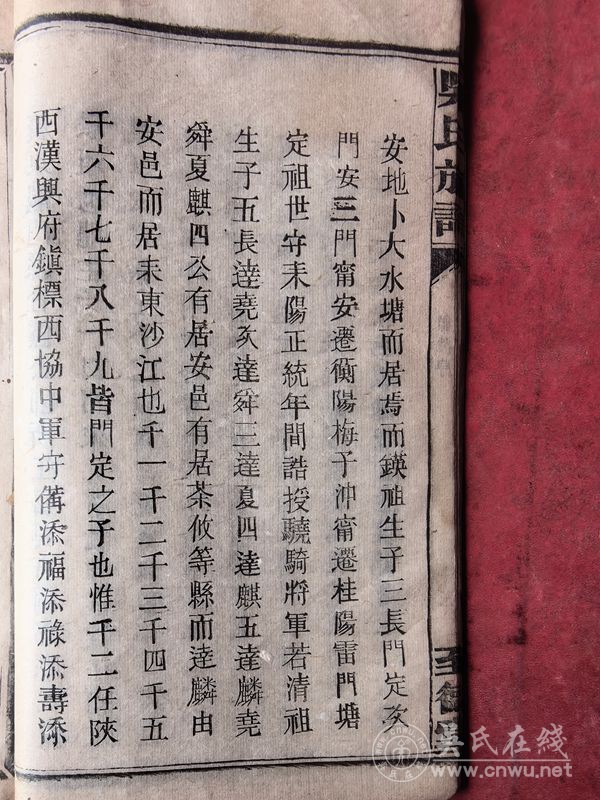 吳氏族譜
至德
安地卜大水塘而居焉而鍈祖生子三長門定次
門安三門甯安遷衡陽梅子沖甯遷桂陽雷門塘
定祖世守耒陽正統年間誥授驍騎將軍若清祖
生子五長達堯次達舜三達夏四達麒五達麟堯
舜夏麒四公有居安邑有居茶攸等縣而達麟由
安邑而居耒東沙江也千一千二千三千四千五
千六千七千八千九皆門定之子也惟千二任陜
西漢興府鎮標西協中軍守備添福添祿添壽添
吴氏在线
www.cnwu.net